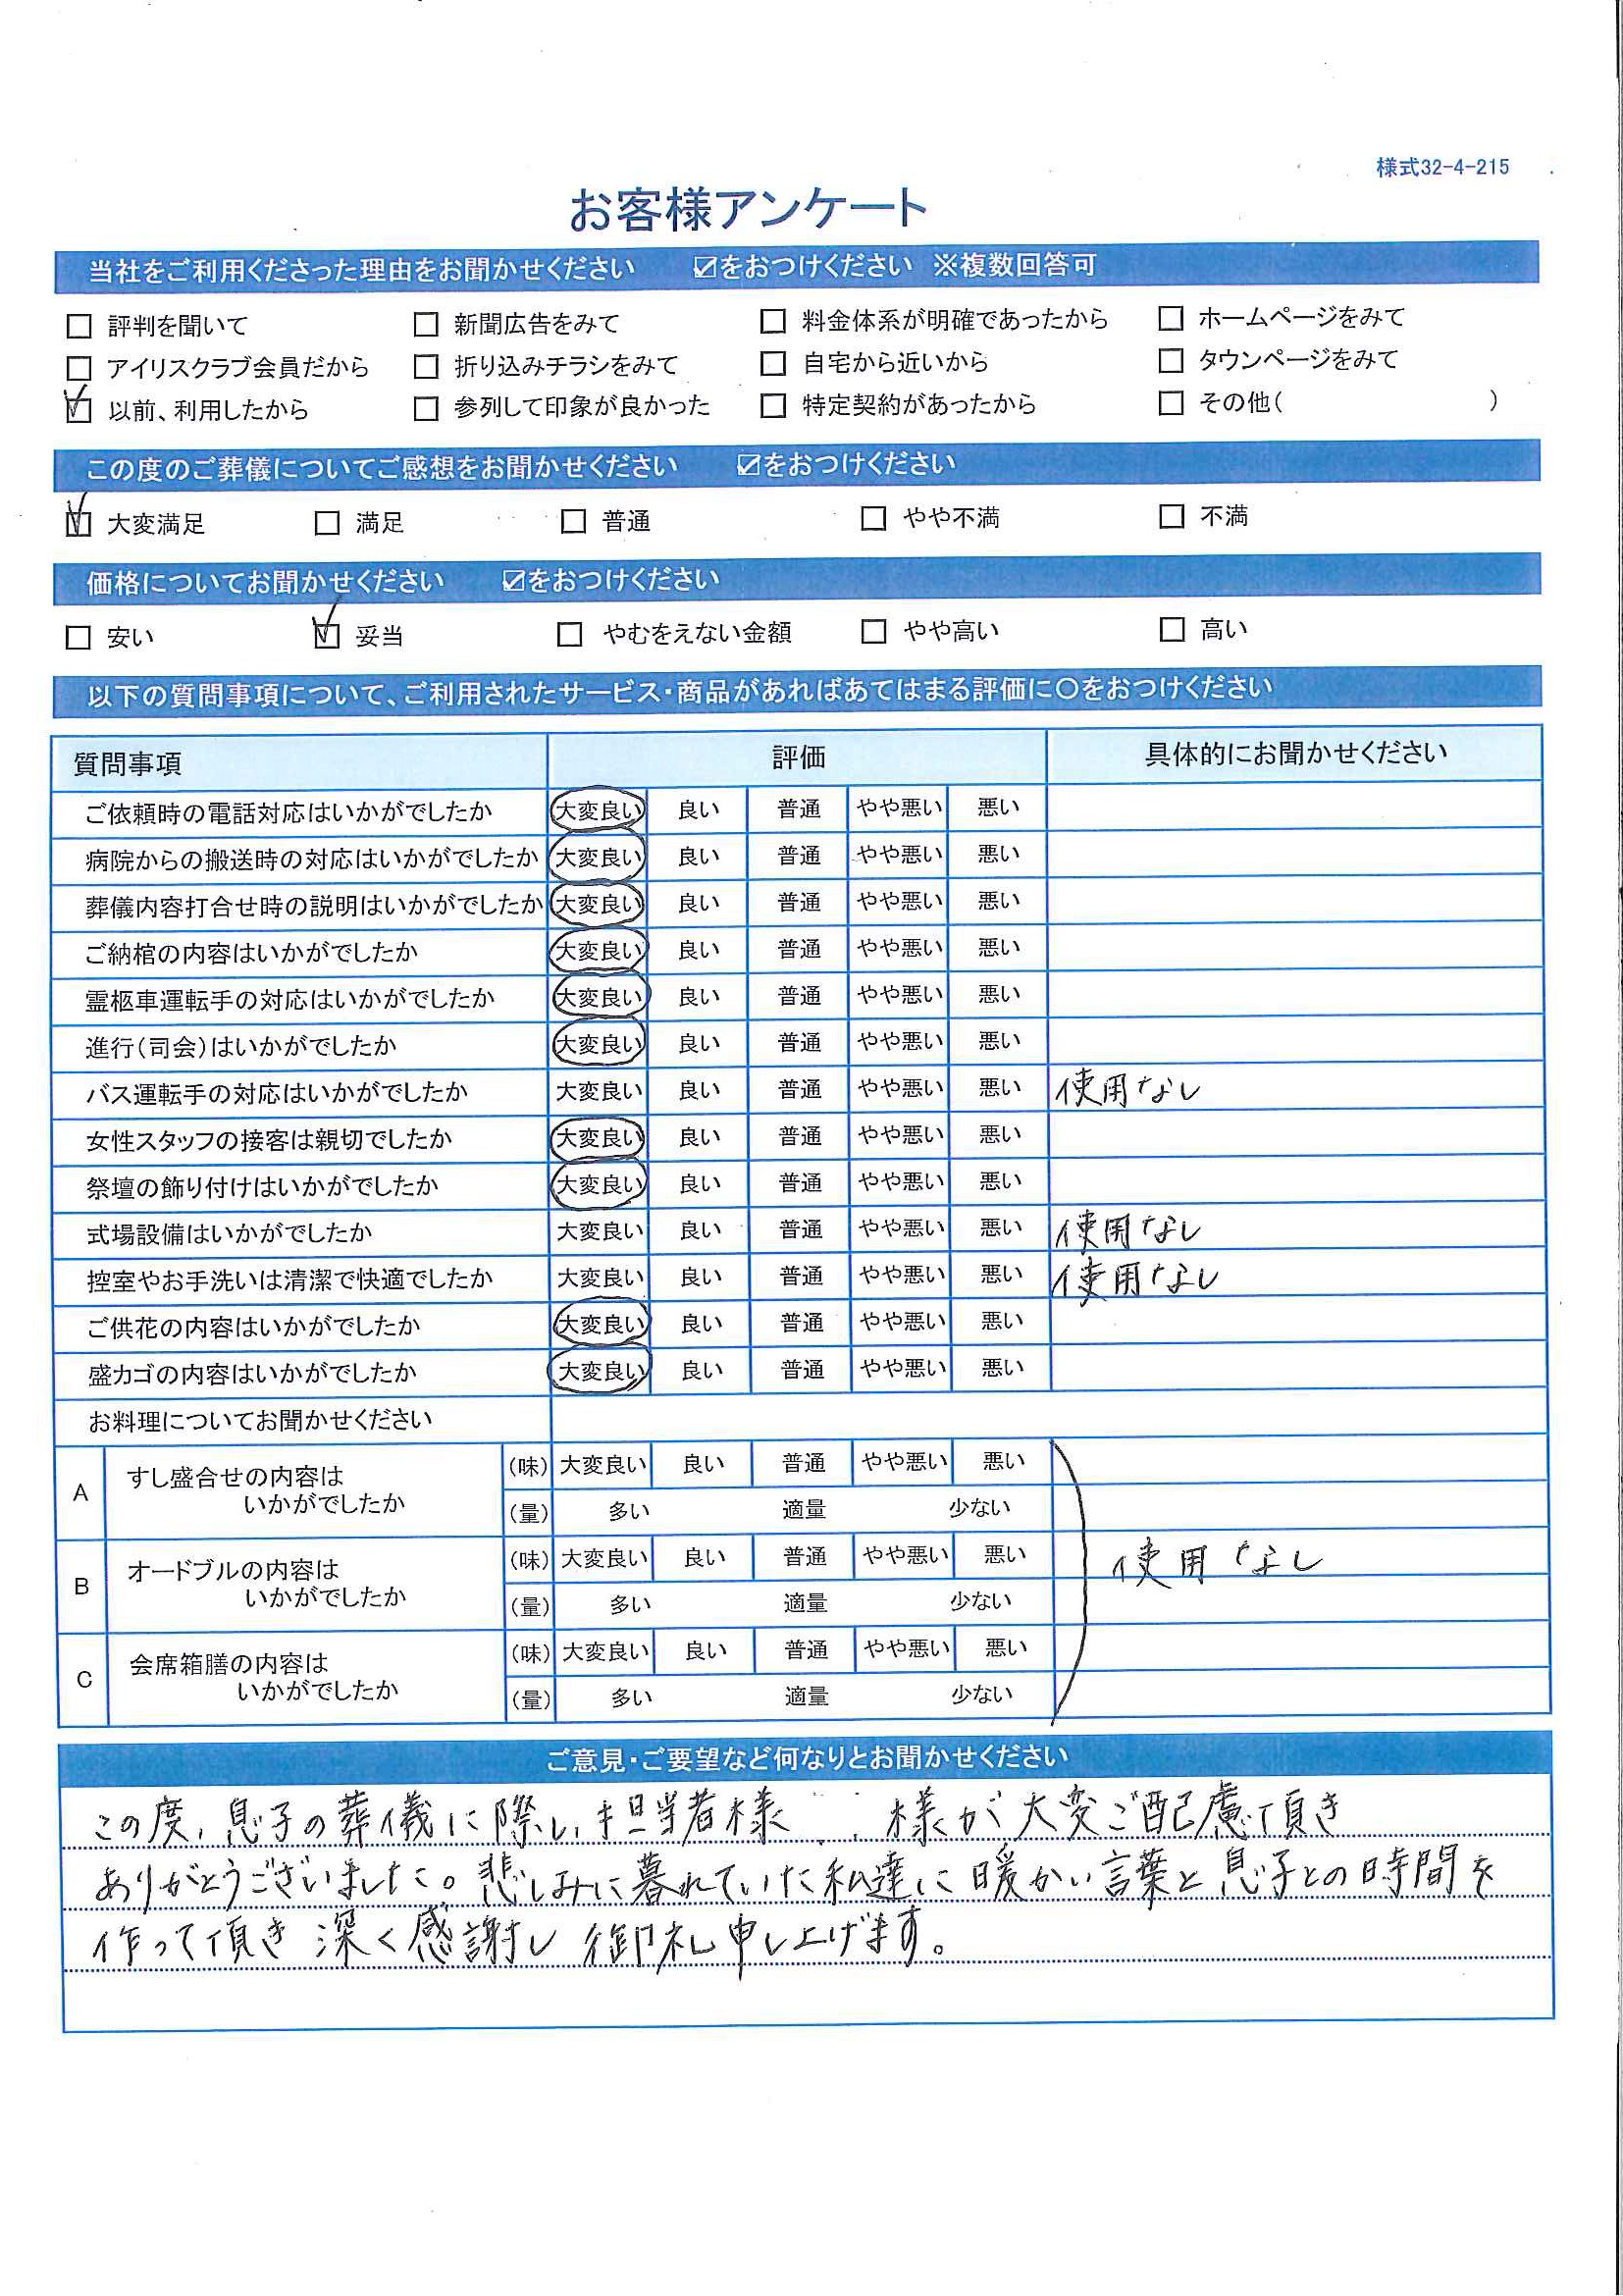 様式32-4-215
お客様アンケート
当社をご利用くださった理由をお聞かせください ☑をおつけください ※複数回答可
☐ 評判を聞いて ☐ 新聞広告をみて ☐ 料金体系が明確であったから ☐ ホームページをみて
☐ アイリスクラブ会員だから ☐ 折り込みチラシをみて ☐ 自宅から近いから ☐ タウンページをみて
☑ 以前、利用したから ☐ 参列して印象が良かった ☐ 特定契約があったから ☐ その他( )
この度のご葬儀についてご感想をお聞かせください ☑をおつけください
☑ 大変満足 ☐ 満足 ☐ 普通 ☐ やや不満 ☐ 不満
価格についてお聞かせください ☑をおつけください
☐ 安い ☑ 妥当 ☐ やむをえない金額 ☐ やや高い ☐ 高い
以下の質問事項について、ご利用されたサービス・商品があればあてはまる評価に〇をおつけください
質問事項 評価 具体的にお聞かせください
ご依頼時の電話対応はいかがでしたか 大変良い 良い 普通 やや悪い 悪い
病院からの搬送時の対応はいかがでしたか 大変良い 良い 普通 やや悪い 悪い
葬儀内容打合せ時の説明はいかがでしたか 大変良い 良い 普通 やや悪い 悪い
ご納棺の内容はいかがでしたか 大変良い 良い 普通 やや悪い 悪い
霊柩車運転手の対応はいかがでしたか 大変良い 良い 普通 やや悪い 悪い
進行(司会)はいかがでしたか 大変良い 良い 普通 やや悪い 悪い
バス運転手の対応はいかがでしたか 大変良い 良い 普通 やや悪い 悪い 使用なし
女性スタッフの接客は親切でしたか 大変良い 良い 普通 やや悪い 悪い
祭壇の飾り付けはいかがでしたか 大変良い 良い 普通 やや悪い 悪い
式場設備はいかがでしたか 大変良い 良い 普通 やや悪い 悪い 使用なし
控室やお手洗いは清潔で快適でしたか 大変良い 良い 普通 やや悪い 悪い 使用なし
ご供花の内容はいかがでしたか 大変良い 良い 普通 やや悪い 悪い
盛カゴの内容はいかがでしたか 大変良い 良い 普通 やや悪い 悪い
お料理についてお聞かせください
A すし盛合せの内容は (味) 大変良い 良い 普通 やや悪い 悪い
いかがでしたか (量) 多い 適量 少ない
B オードブルの内容は (味) 大変良い 良い 普通 やや悪い 悪い 使用なし
いかがでしたか (量) 多い 適量 少ない
C 会席箱膳の内容は (味) 大変良い 良い 普通 やや悪い 悪い
いかがでしたか (量) 多い 適量 少ない
ご意見・ご要望など何なりとお聞かせください
この度、息子の葬儀に際し、担当者様 様が大変ご配慮頂き
ありがとうございました。悲しみに暮れていた私達に暖かい言葉と息子との時間を
作って頂き深く感謝し御礼申し上げます。